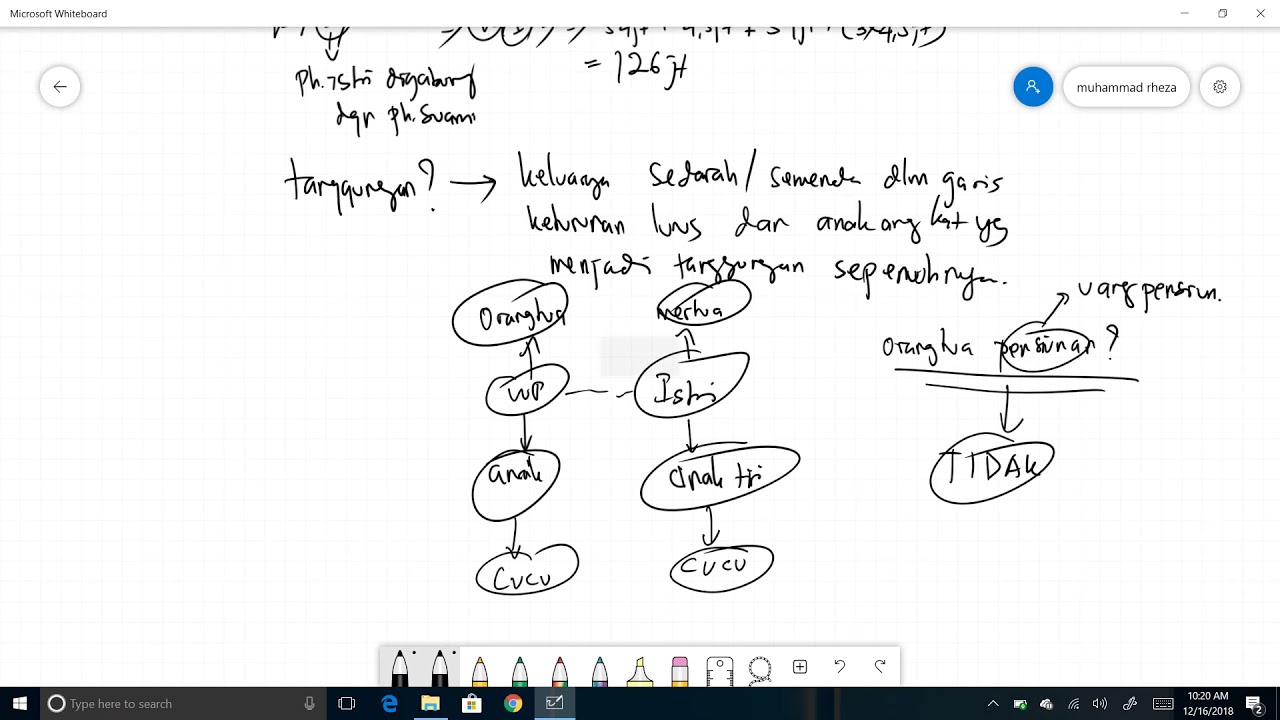 Microsoft Whiteboard
= 126 jt
Ph. istri digabung
dgn ph. suami
muhammad rheza
tanggungan? → keluarga sedarah / semenda dlm garis
keturunan lurus dan anak angkat yg
menjadi tanggungan sepenuhnya.
uang pensiun.
Orangtua
mertua
orangtua pensiunan?
WP
Istri
anak
anak tiri
TIDAK
Cucu
cucu
Type here to search
10:20 AM
12/16/2018
2